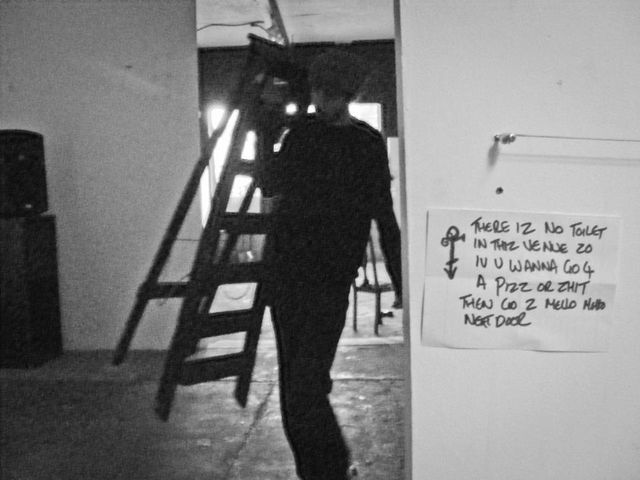 THERE IZ NO TOILET
IN THIZ VENUE ZO
IV U WANNA GO 4
A PIZZ OR ZHIT
THEN GO 2 MELLO MELLO
NEXT DOOR